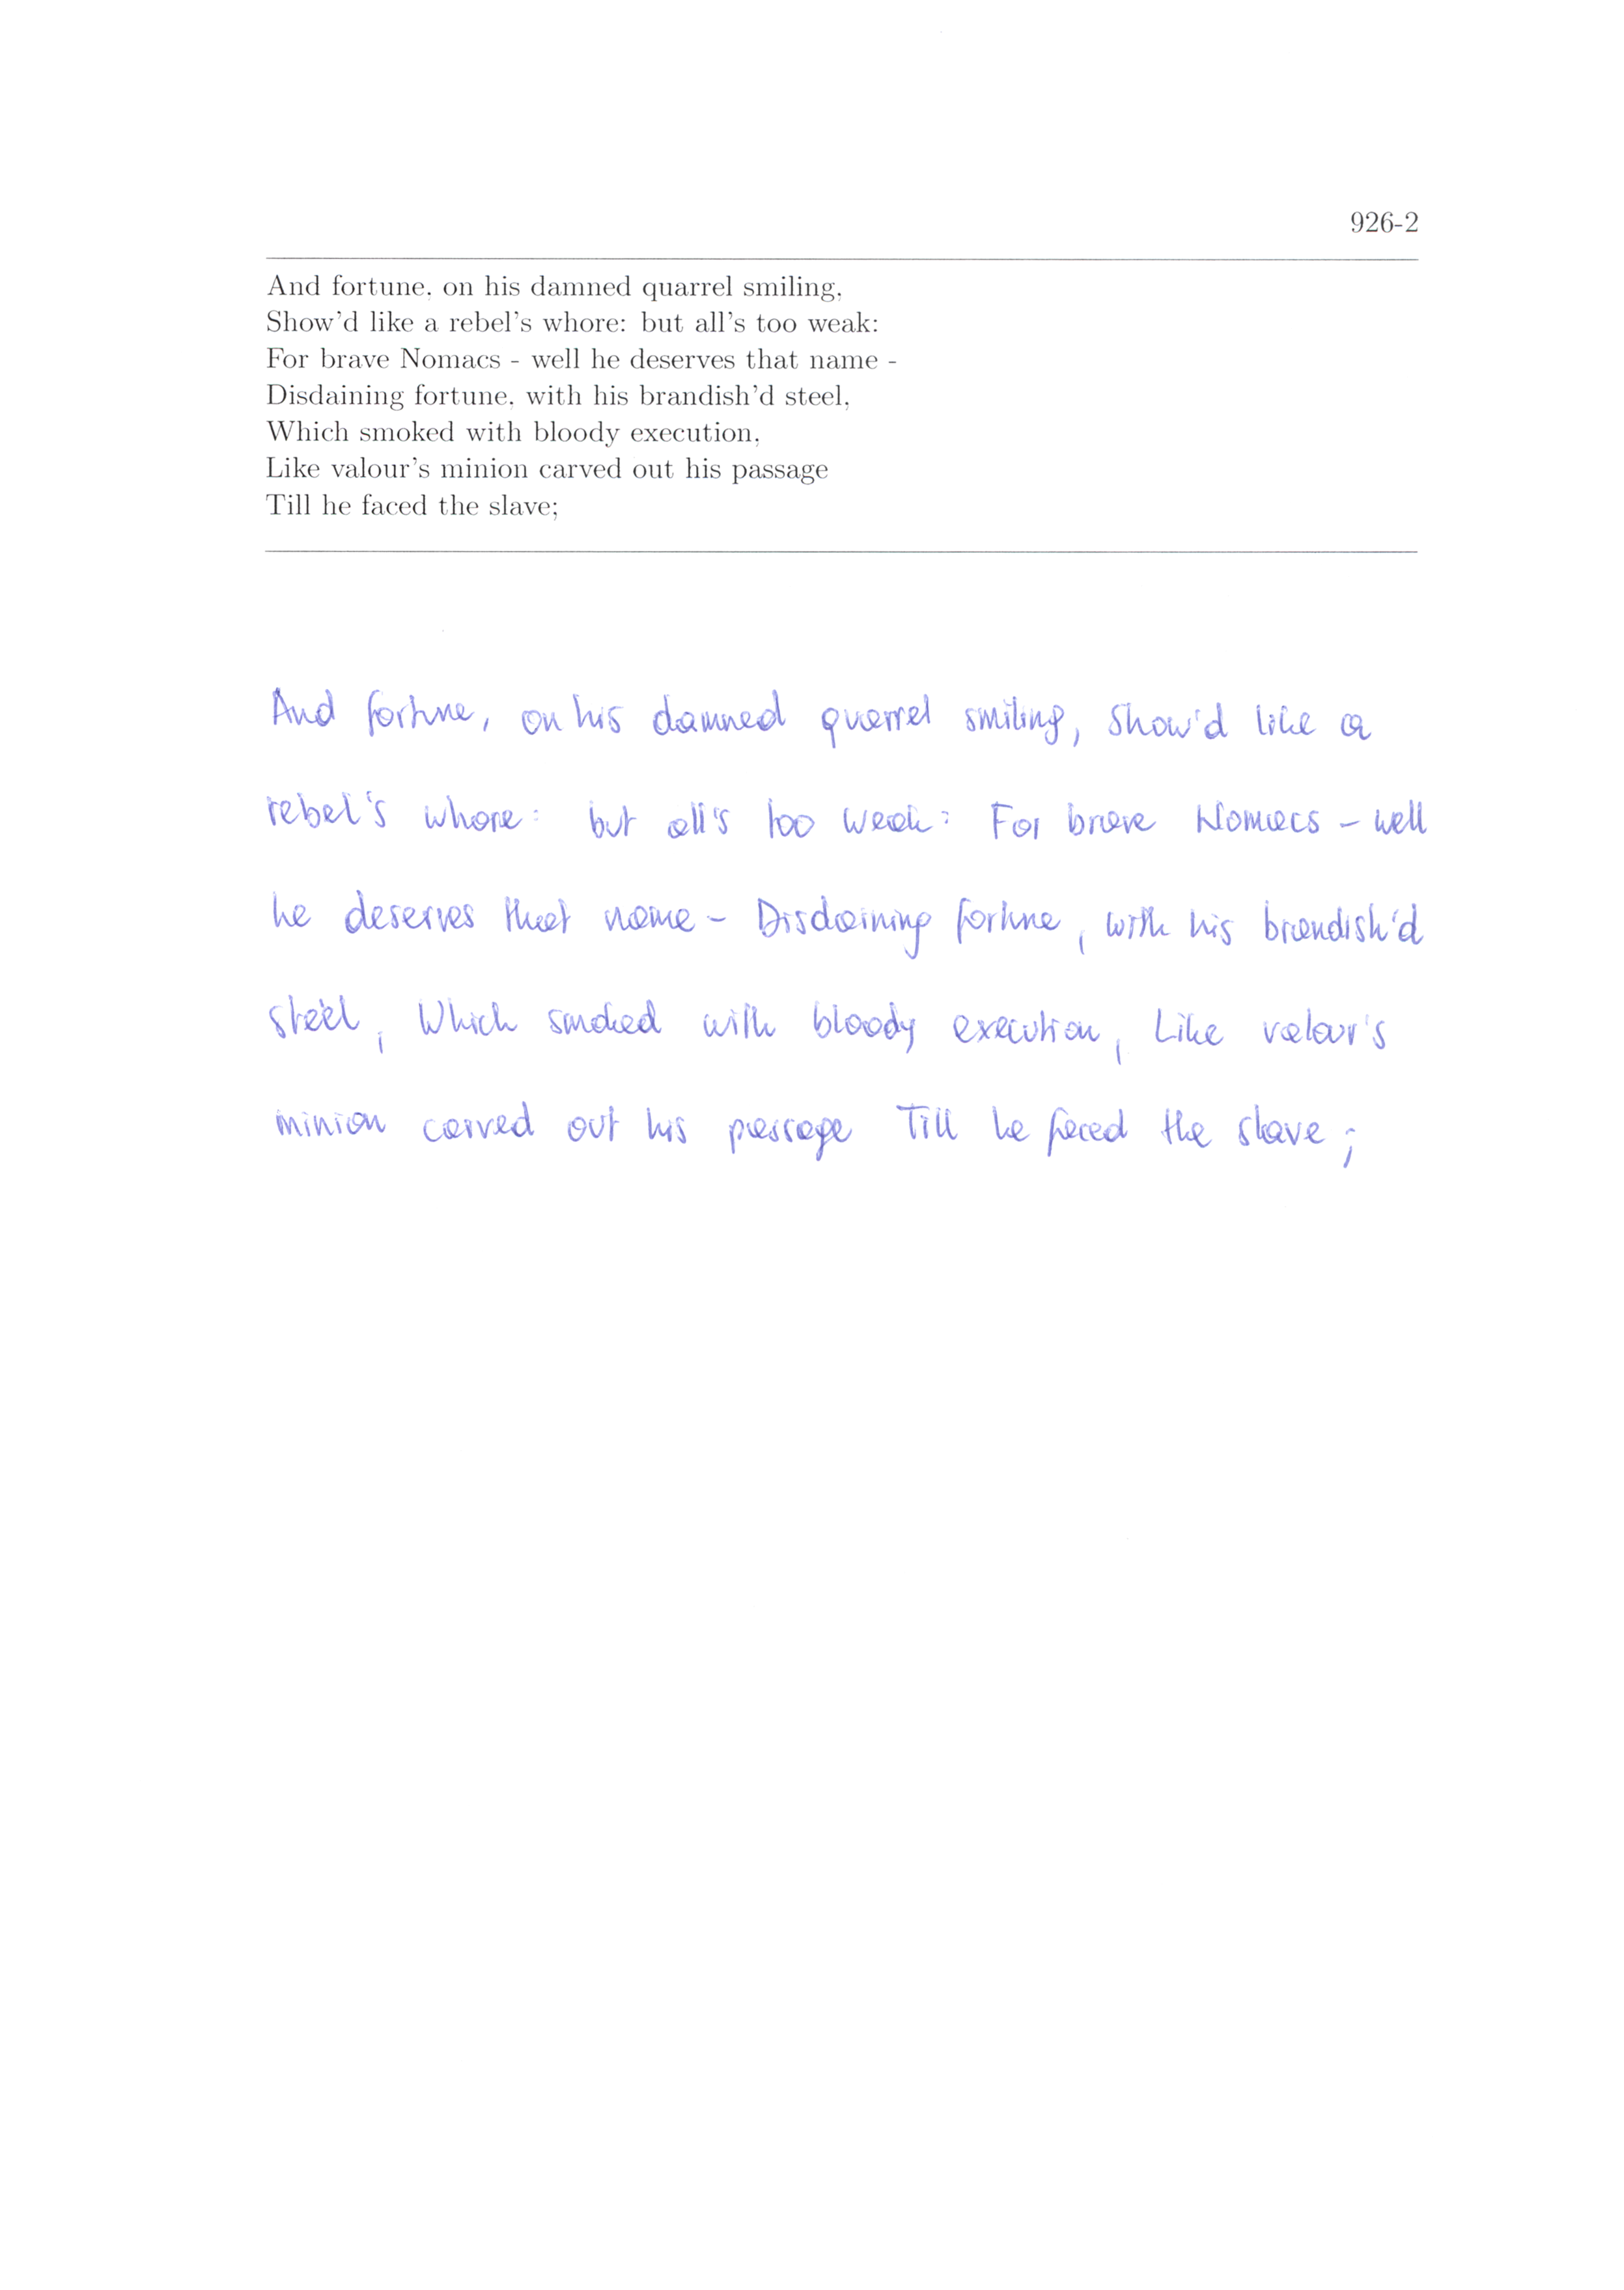 926-2
And fortune, on his damned quarrel smiling,
Show'd like a rebel's whore: but all's too weak:
For brave Nomacs - well he deserves that name -
Disdaining fortune, with his brandish'd steel,
Which smoked with bloody execution,
Like valour's minion carved out his passage
Till he faced the slave;
And fortune, on his damned quarrel smiling, Show'd like a
rebel's whore: but all's too weak: For brave Nomacs - well
he deserves that name - Disdaining fortune, with his brandish'd
steel, Which smoked with bloody execution, Like valour's
minion carved out his passage Till he faced the slave;